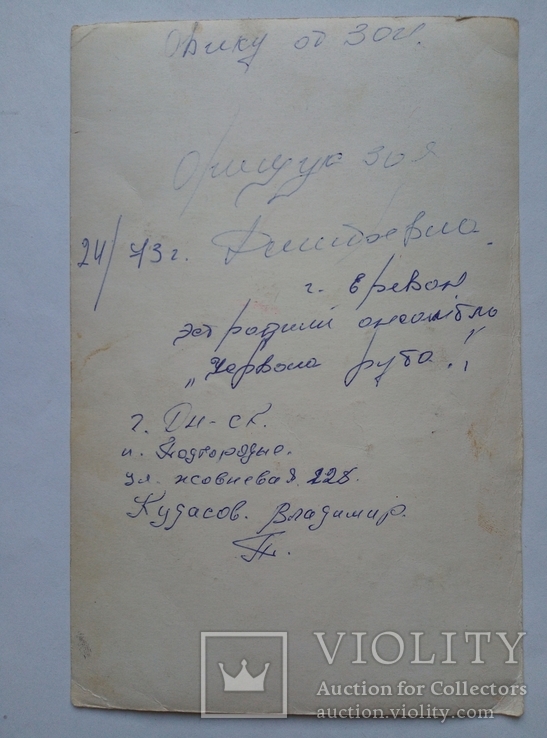 Орику от Зои.
Орищук Зоя
24/ 73 г. Дмитревна
г. Ереван
эстрадний ансамбль
„Червона рута."
г. Дн-ск.
п. Подгородье.
ул. Жовневая 228.
Кудасов. Владимир.
VIOLITY
Auction for Collectors
auction.violity.com